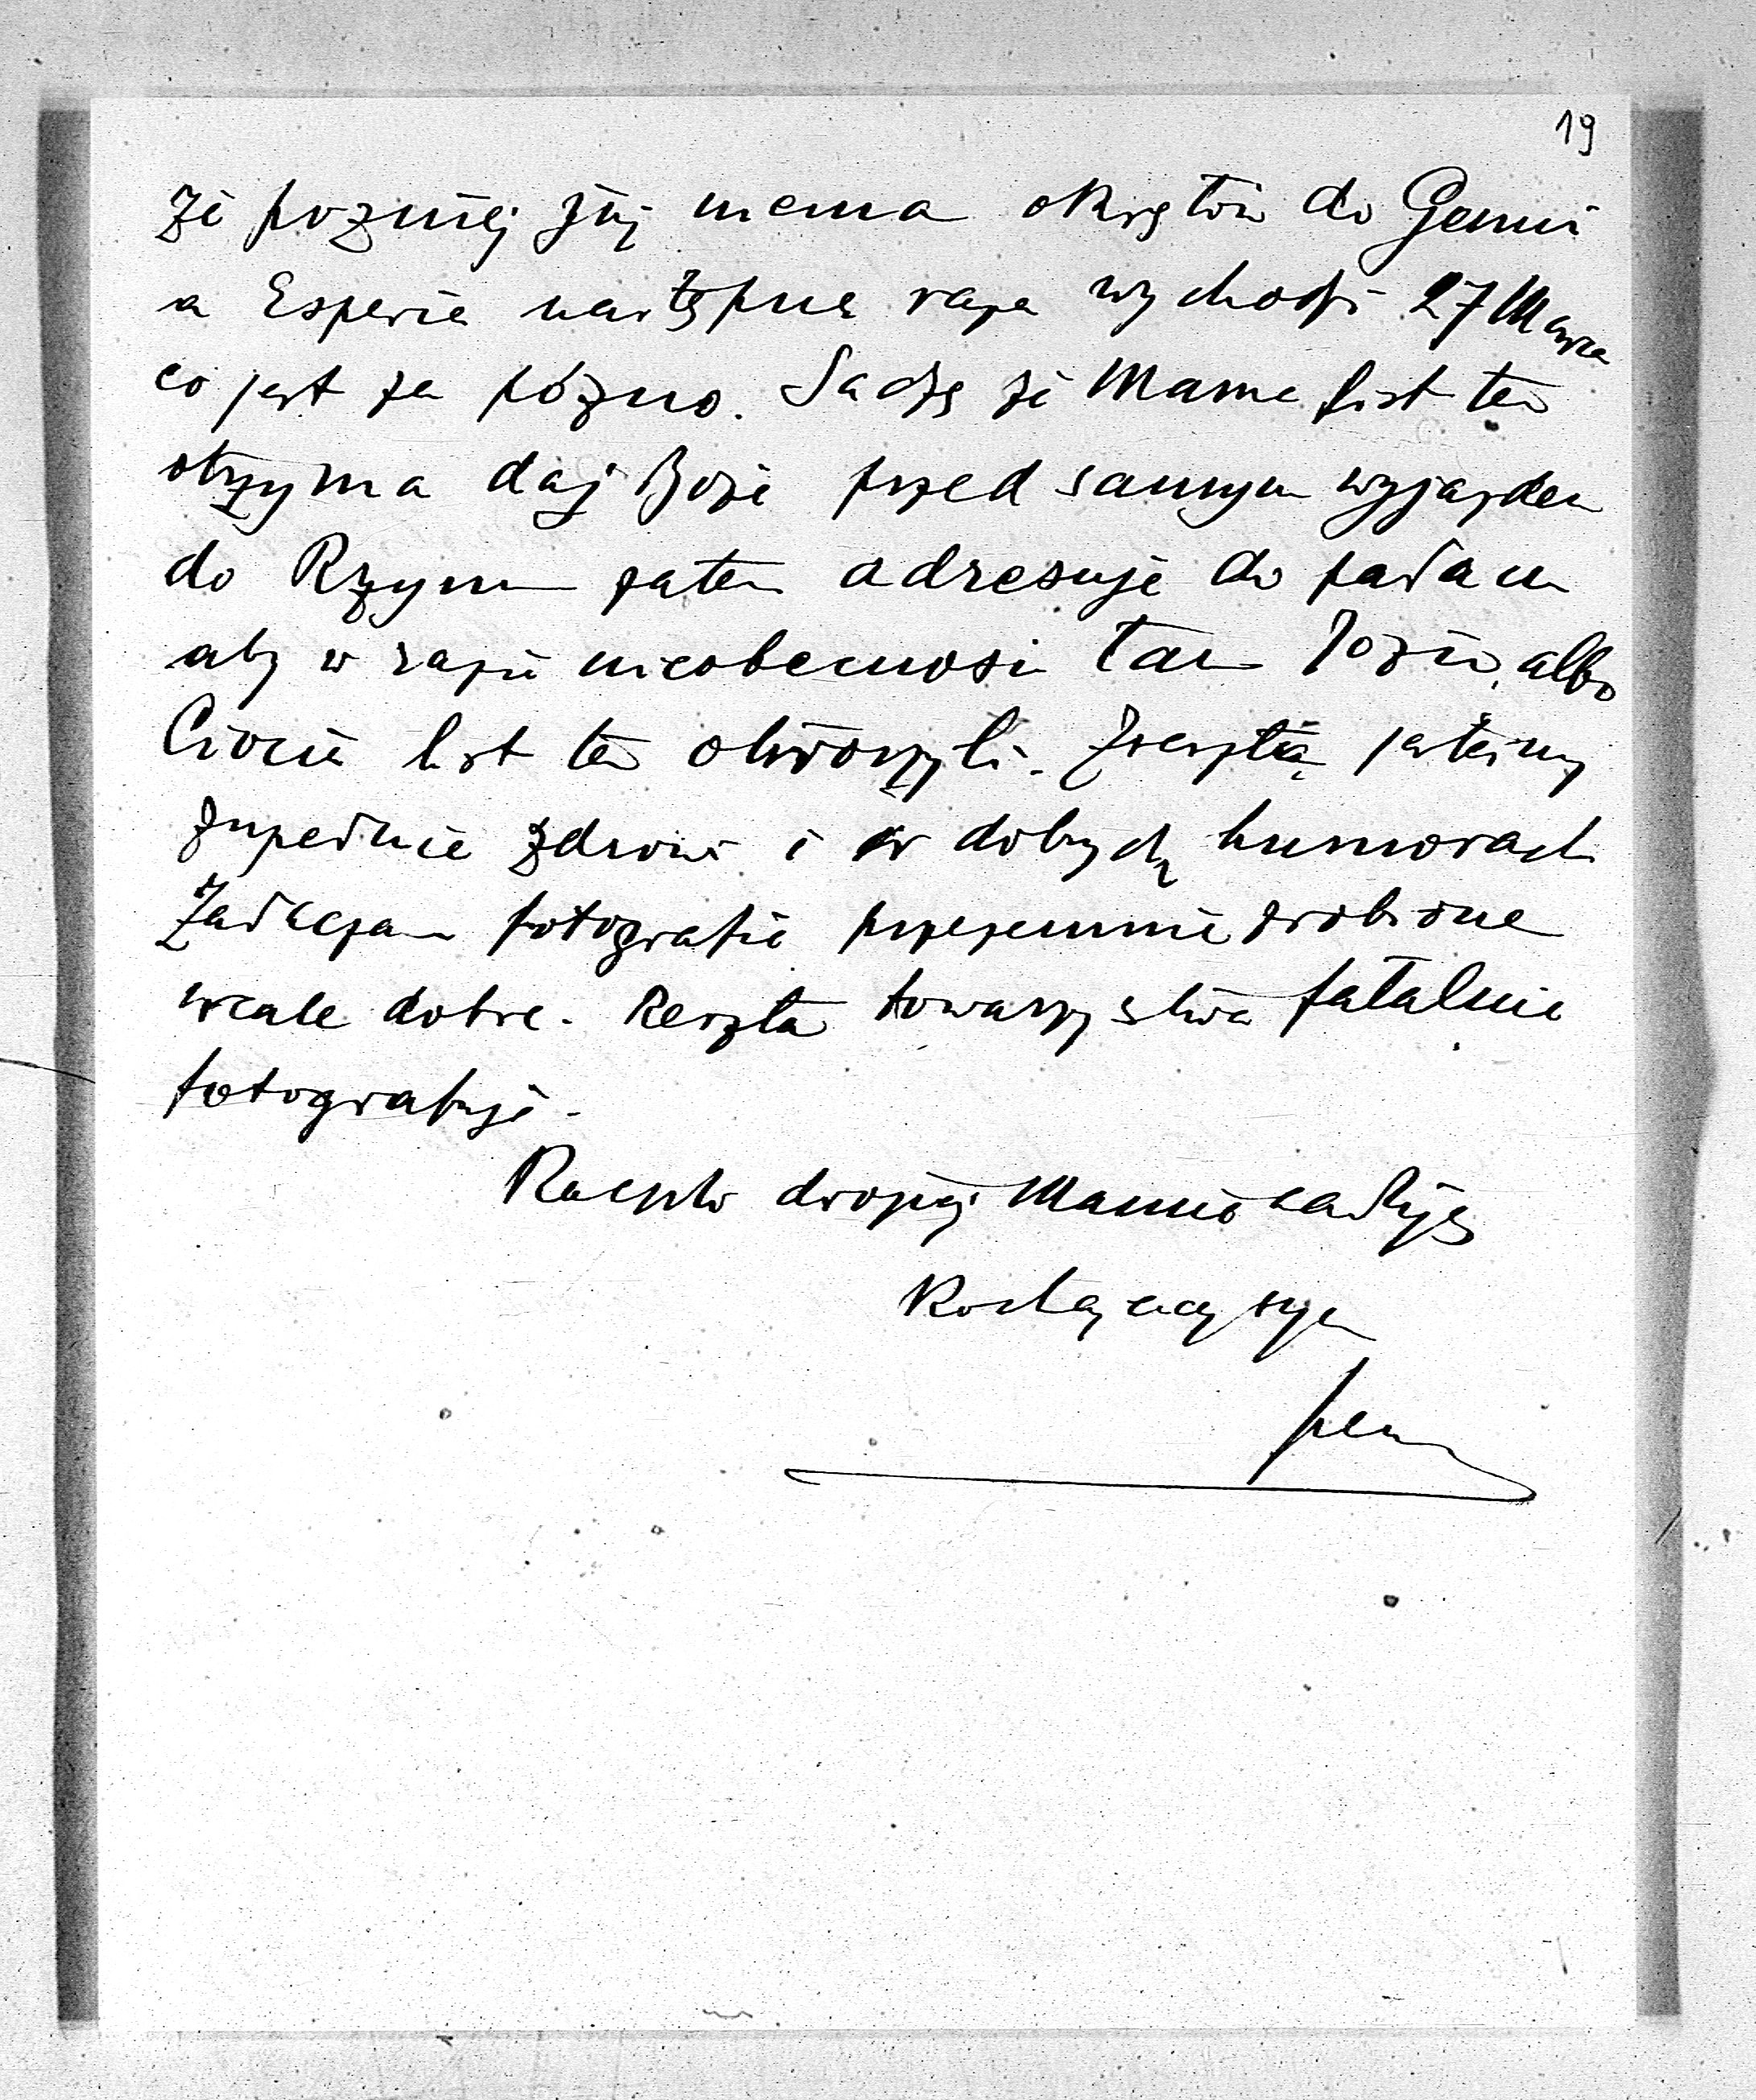 19
że pozniej już niema okrętów do Genui
a Esperia następne raza wychodzi 27 Marca
co jest za późno. Sadzę że Mama list ten
otrzyma daj Boże przed samym wyjazdem
do Rzymu zatem adresuje do pałacu
aby w razie nieobecnosci tam Józio albo
Ciocia list ten otworzyli. Zresztą jesteśmy
zupełnie zdrowi i w dobrych humorach
Załaczam fotografie przezemnie zrobione
wcale dobre. Reszta towarzystwa fatalnie
fotografuje.
Raczki drogiej Mamie całuję
Kochający syn